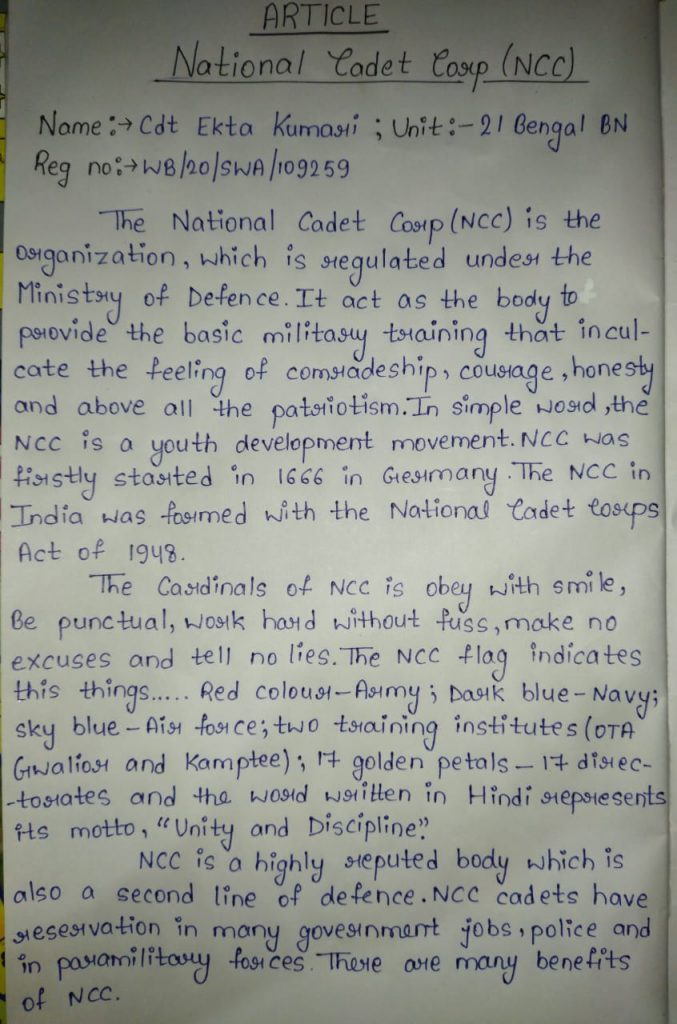 ARTICLE
National Cadet Corp (NCC)
Name :→ Cdt Ekta Kumari ; Unit :- 21 Bengal BN
Reg no :→ WB/20/SWA/109259
The National Cadet Corp (NCC) is the
organization, which is regulated under the
Ministry of Defence. It act as the body to
provide the basic military training that incul-
cate the feeling of comradeship, courage, honesty
and above all the patriotism. In simple word, the
NCC is a youth development movement. NCC was
firstly started in 1666 in Germany. The NCC in
India was formed with the National Cadet Corps
Act of 1948.
The Cardinals of NCC is obey with smile,
Be punctual, work hard without fuss, make no
excuses and tell no lies. The NCC flag indicates
this things..... Red colour - Army ; Dark blue - Navy;
sky blue - Air force; two training institutes (OTA
Gwalior and Kamptee) ; 17 golden petals - 17 direc-
-torates and the word written in Hindi represents
its motto, "Unity and Discipline".
NCC is a highly reputed body which is
also a second line of defence. NCC cadets have
reservation in many government jobs, police and
in paramilitary forces. There are many benefits
of NCC.